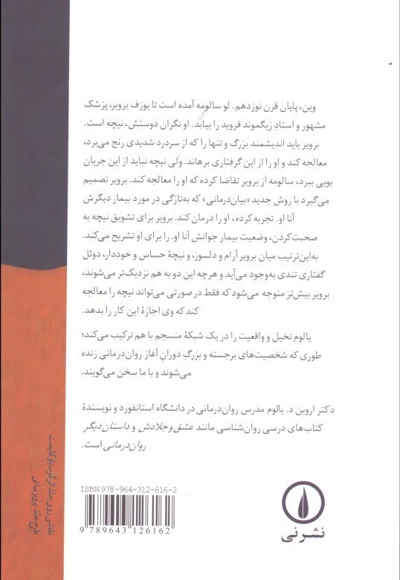 وین، پایان قرن نوزدهم. لو سالومه آمده است تا یوزف برویر، پزشک
مشهور و استادِ زیگموند فروید را بیابد. او نگران دوستش، نیچه است.
برویر باید اندیشمند بزرگ و تنها را که از سردرد شدیدی رنج می‌برد،
معالجه کند و او را از این گرفتاری برهاند. ولی نیچه نباید از این جریان
بویی ببرد، سالومه از برویر تقاضا کرده که او را معالجه کند. برویر تصمیم
می‌گیرد با روش جدید «بیان‌درمانی» که به‌تازگی در مورد بیمار دیگرش
آنا او. تجربه کرده، او را درمان کند. برویر برای تشویق نیچه به
صحبت‌کردن، وضعیت بیمار جوانش آنا او. را برای او تشریح می‌کند.
به‌این‌ترتیب میان برویر آرام و دلسوز، و نیچهٔ حساس و خوددار، دوئل
گفتاری تندی به‌وجود می‌آید و هرچه این دو به هم نزدیک‌تر می‌شوند،
برویر بیش‌تر متوجه می‌شود که فقط در صورتی می‌تواند نیچه را معالجه
کند که وی اجازهٔ این کار را بدهد.
یالوم تخیل و واقعیت را در یک شبکهٔ منسجم با هم ترکیب می‌کند؛
طوری که شخصیت‌های برجسته و بزرگِ دورانِ آغاز روان‌درمانی زنده
می‌شوند و با ما سخن می‌گویند.
دکتر اروین د. یالوم مدرس روان‌درمانی در دانشگاه استانفورد و نویسندهٔ
کتاب‌های درسی روان‌شناسی مانند عشق و جلادش و داستان دیگر
روان‌درمانی است.
ISBN 978-964-312-616-2
9 789643 126162
نشر نی
نقاشی روی جلد: اثر گوستاو کلیمت
طرح جلد: پرویز بیانی